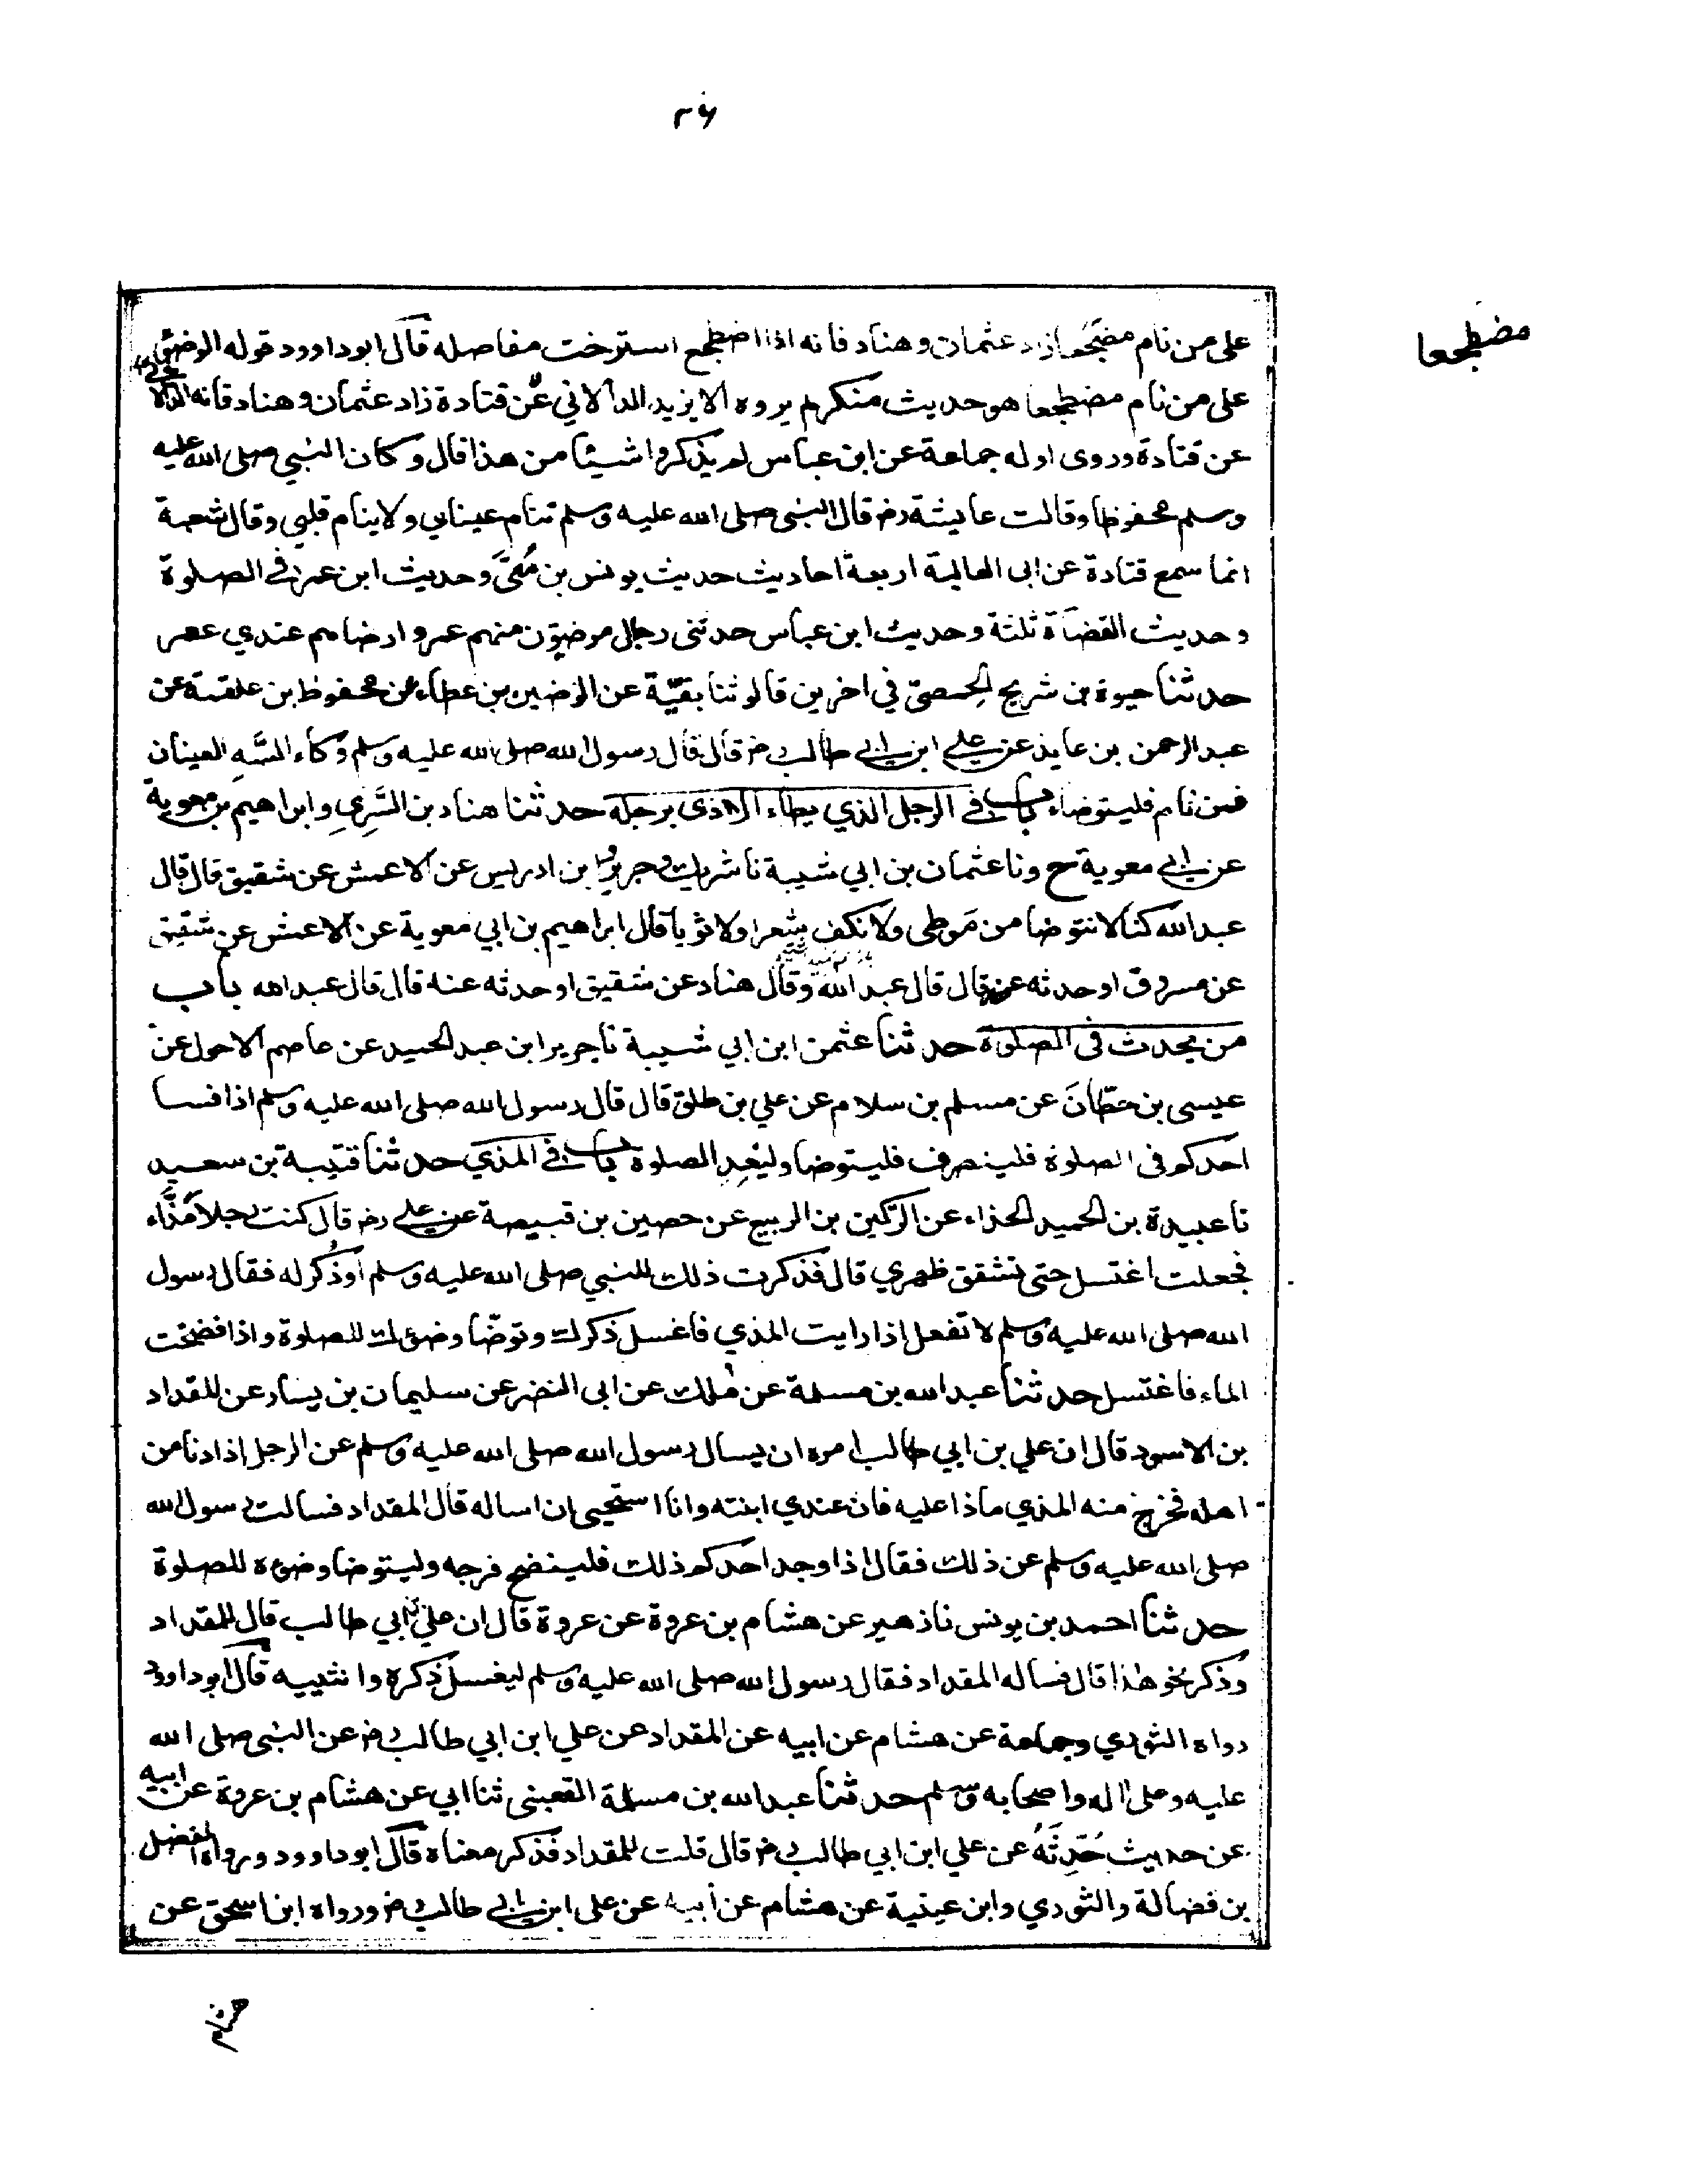 ٢٦
مضطجعا
على من نام مضجعا زاد عثمان وهناد فانه اذا اضطجع استرخت مفاصله قال ابو داوود قوله الوضؤ
على من نام مضطجعا هو حديث منكر لم يروه الا يزيد الدالاني عن قتادة زاد عثمان وهناد فانه
عن قتادة وروى اوله جماعة عن ابن عباس لم يذكروا شيئا من هذا قال وكان النبي صلى الله عليه
وسلم محفوظا وقالت عايشة رضـ قال النبى صلى الله عليه وسلم تنام عيناي ولا ينام قلبي وقال شعبة
انما سمع قتادة عن ابى العالية اربعة احاديث حديث يونس بن متّى وحديث ابن عمر في الصلوة
وحديث القضاة ثلثة وحديث ابن عباس حدثنى رجال مرضيون منهم عمر وارضاهم عندي عمر
حدثنا حيوة بن شريح الحمصيّ في اخرين قالو ثنا بقيّة عن الوضين بن عطاء عن محفوظ بن علقمة عن
عبد الرحمن بن عايذ عن علي ابن ابي طالب رضـ قال قال رسول الله صلى الله عليه وسلم وكاء السَّهِ العينان
فمن نام فليتوضاء باب في الرجل الذي يطاء الاذى برجله حدثنا هناد بن السَّرِي وابراهيم بن معوية
عن ابي معوية ح ونا عثمان بن ابي شيبة نا شريك وجرير وابن ادريس عن الاعمش عن شقيق قال قال
عبد الله كنا لا نتوضا من مَوطى ولا نكف شعرا ولا ثوبا قال ابراهيم بن ابي معوية عن الاعمش عن شقيق
عن مسروق او حدثه عنه قال قال عبد الله وقال هناد عن شقيق او حدثه عنه قال قال عبد الله باب
من يحدث فى الصلوة حدثنا عثمن ابن ابي شيبة نا جرير ابن عبد الحميد عن عاصم الاحول عن
عيسى بن حطّانَ عن مسلم بن سلام عن علي بن طلق قال قال رسول الله صلى الله عليه وسلم اذا فسا
احدكم فى الصلوة فلينصرف فليتوضا وليُعِدِ الصلوة باب في المذي حدثنا قتيبة بن سعيد
نا عبيدة بن الحميد الحذاء عن الرّكين بن الربيع عن حصين بن قبيصة عن علي رضـ قال كنت رجلا مذّاء
فجعلت اغتسل حتى تشقق ظهري قال فذكرت ذلك للنبي صلى الله عليه وسلم أو ذُكر له فقال رسول
الله صلى الله عليه وسلم لا تفعل اذا رايت المذي فاغسل ذكرك وتوضّا وضؤك للصلوة واذا فضخت
الماء فاغتسل حدثنا عبد الله بن مسلمة عن ملك عن ابى النضر عن سليمان بن يسار عن المقداد
بن الاسود قال ان علي بن ابي طالب امره ان يسال رسول الله صلى الله عليه وسلم عن الرجل اذا دنا من
اهله فخرج منه المذي ماذا عليه فان عندي ابنته وانا استحيى ان اساله قال المقداد فسالت رسول الله
صلى الله عليه وسلم عن ذلك فقال اذا وجد احدكم ذلك فلينضح فرجه وليتوضا وضوءه للصلوة
حدثنا احمد بن يونس نا زهير عن هشام بن عروة عن عروة قال ان علي بن ابي طالب قال للمقداد
وذكر نحو هذا قال فساله المقداد فقال رسول الله صلى الله عليه وسلم ليغسل ذكره وانثييه قال ابو داوود
رواه الثوري وجماعة عن هشام عن ابيه عن المقداد عن علي ابن ابي طالب رضـ عن النبى صلى الله
عليه وعلى اله واصحابه وسلم حدثنا عبد الله بن مسلمة القعبنى ثنا ابي عن هشام بن عروة عن ابيه
عن حديث حُدِّثَهُ عن علي ابن ابي طالب رضـ قال قلت للمقداد فذكر معناه قال ابو داوود ورواه المفضل
بن فضالة والثوري وابن عيينة عن هشام عن أبيه عن على ابن ابي طالب رضـ ورواه ابن اسحق عن